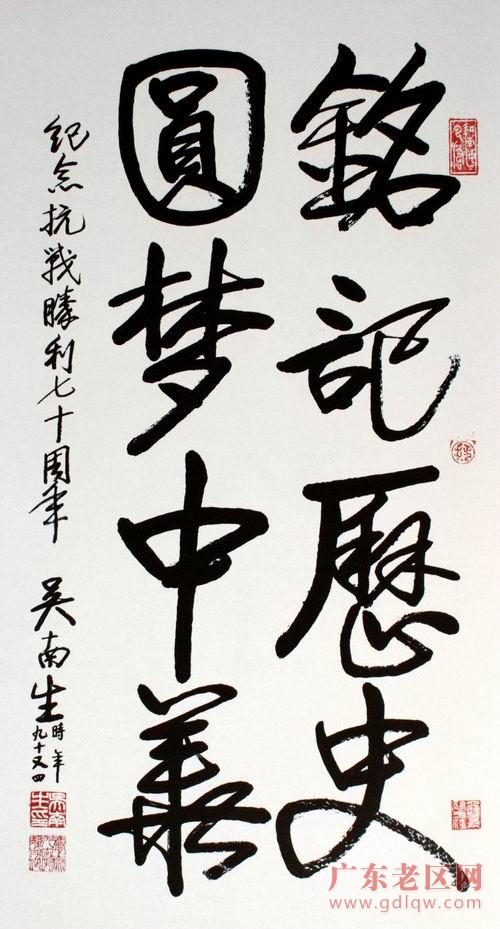 銘記歷史
圓梦中華
纪念抗战勝利七十周年 吴南生
時年
九十又四
广东老区网
www.gdlqw.com